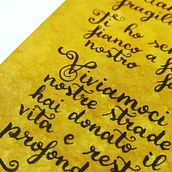 fragili
Ti ho se
fianco a
nostro
Viviamoci
nostre strade
hai donato il
vita e res
profond